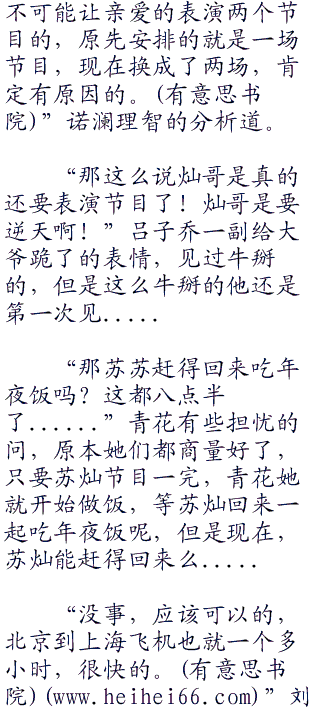 不可能让亲爱的表演两个节
目的，原先安排的就是一场
节目，现在换成了两场，肯
定有原因的。(有意思书
院)”诺澜理智的分析道。
“那这么说灿哥是真的
还要表演节目了！灿哥是要
逆天啊！”吕子乔一副给大
爷跪了的表情，见过牛掰
的，但是这么牛掰的他还是
第一次见.....
“那苏苏赶得回来吃年
夜饭吗？这都八点半
了......”青花有些担忧的
问，原本她们都商量好了，
只要苏灿节目一完，青花她
就开始做饭，等苏灿回来一
起吃年夜饭呢，但是现在，
苏灿能赶得回来么.....
“没事，应该可以的，
北京到上海飞机也就一个多
小时，很快的。(有意思书
院)(www.heihei66.com)”刘